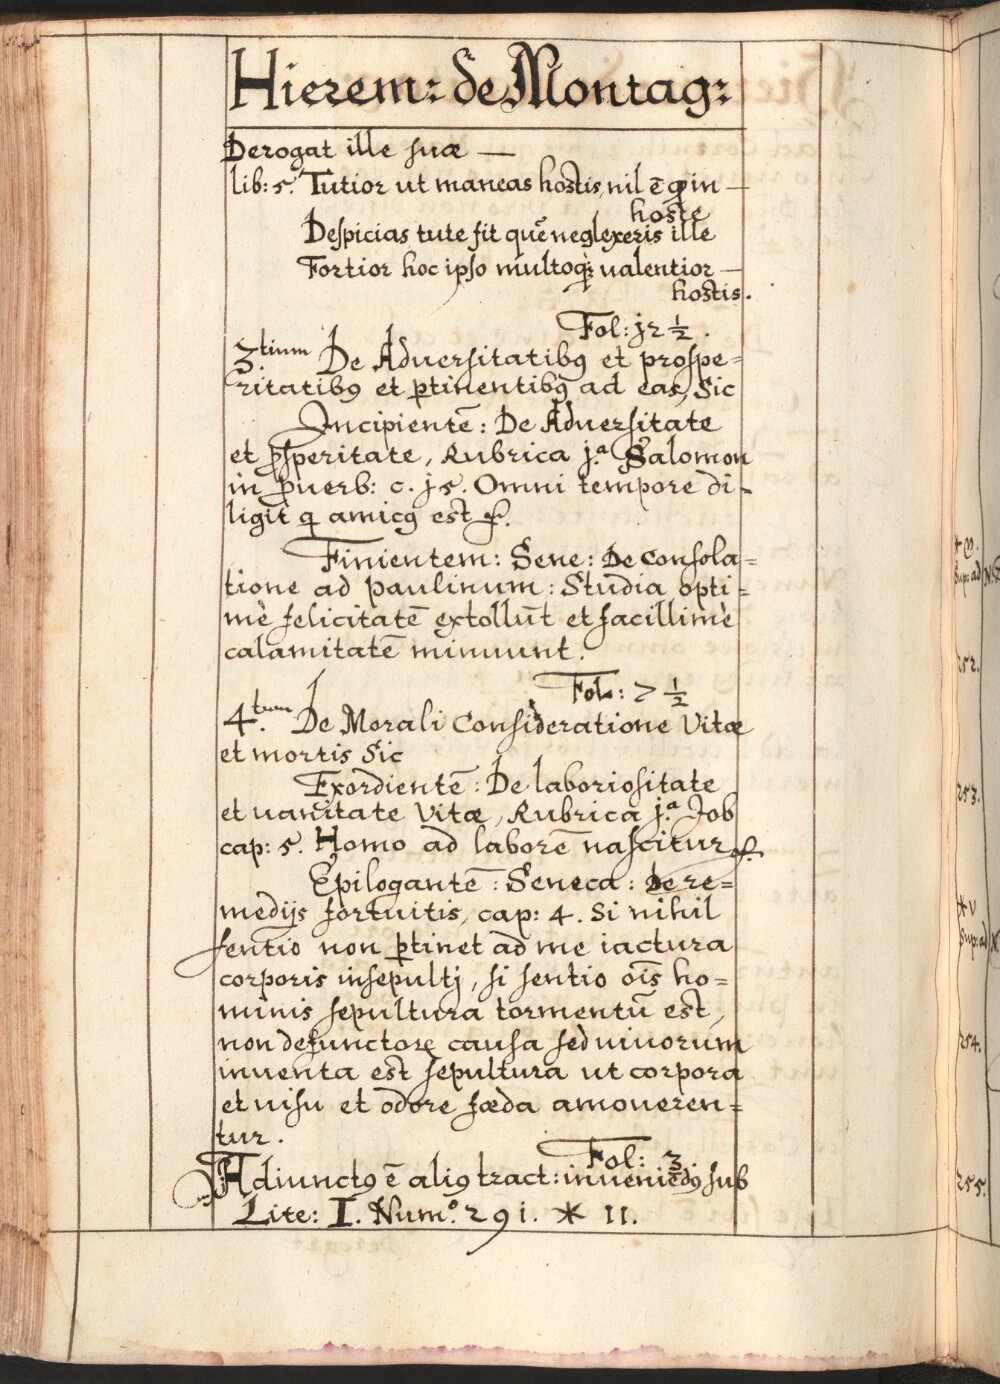 Hierem: de Montag:
Derogat ille suæ —
lib: 5. Tutior ut maneas hostis, nil ē qđ in —
hoste
Despicias tute fit quē neglexeris ille
Fortior hoc ipso multoq; ualentior —
hostis.
Fol: j2 ½.
3.tium De Aduersitatibꝯ et prospe=
ritatibꝯ et ꝑtinentibꝯ ad eas, Sic
Incipientē: De Aduersitate
et ꝓsperitate, Rubrica j.ª Salomon
in ꝓuerb: c. j5. Omni tempore di-
ligit q amicꝯ est &.
Finientem: Sene: De Consola=
tione ad Paulinum: Studia opti=
mè felicitatē extollūt et facillimè
calamitatē minuunt.
Fol: 7 ½
4.tum De Morali Consideratione Vitæ
et mortis Sic
Exordientē: De laboriositate
et uanitate Vitæ, Rubrica j.ª Job
cap: 5. Homo ad laborē nascitur &.
Epilogantē: Seneca: de re=
medijs fortuitis, cap: 4. Si nihil
sentio non ꝑtinet ad me iactura
corporis insepultj, si sentio oīs ho=
minis sepultura tormentū est,
non defunctoꝝ causa sed uiuorum
inuenta est sepultura ut corpora
et uisu et odore fœda amoueren=
tur.
Fol: 3
Adiunctꝯ ē aliꝯ tract: inueniēdꝯ sub
Lite: I. Num.º 291. * II.
Sup: ad
252.
253.
* V
Sup: ad
254.
255.